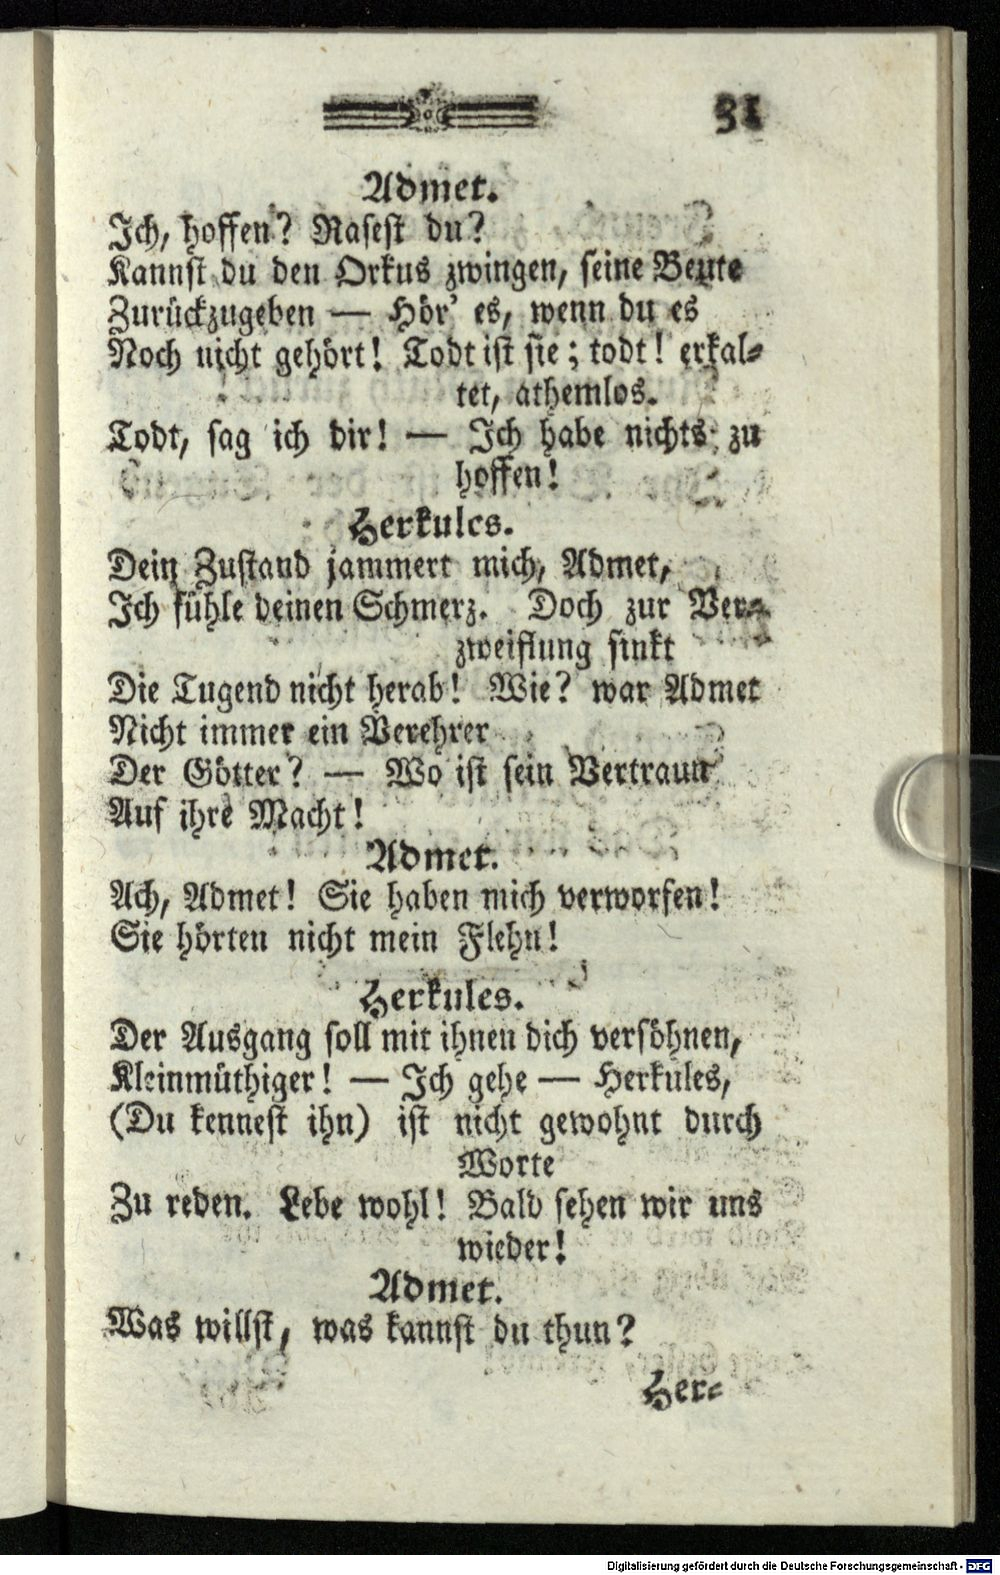 31
Admet.
Ich, hoffen? Rasest du?
Kannst du den Orkus zwingen, seine Beute
Zurückzugeben — Hör' es, wenn du es
Noch nicht gehört! Todt ist sie; todt! erkal-
tet, athemlos.
Todt, sag ich dir! — Ich habe nichts zu
hoffen!
Herkules.
Dein Zustand jammert mich, Admet,
Ich fühle deinen Schmerz. Doch zur Ver-
zweiflung sinkt
Die Tugend nicht herab! Wie? war Admet
Nicht immer ein Verehrer
Der Götter? — Wo ist sein Vertraun
Auf ihre Macht!
Admet.
Ach, Admet! Sie haben mich verworfen!
Sie hörten nicht mein Flehn!
Herkules.
Der Ausgang soll mit ihnen dich versöhnen,
Kleinmüthiger! — Ich gehe — Herkules,
(Du kennest ihn) ist nicht gewohnt durch
Worte
Zu reden. Lebe wohl! Bald sehen wir uns
wieder!
Admet.
Was willst, was kannst du thun?
Her-
Digitalisierung gefördert durch die Deutsche Forschungsgemeinschaft - DFG